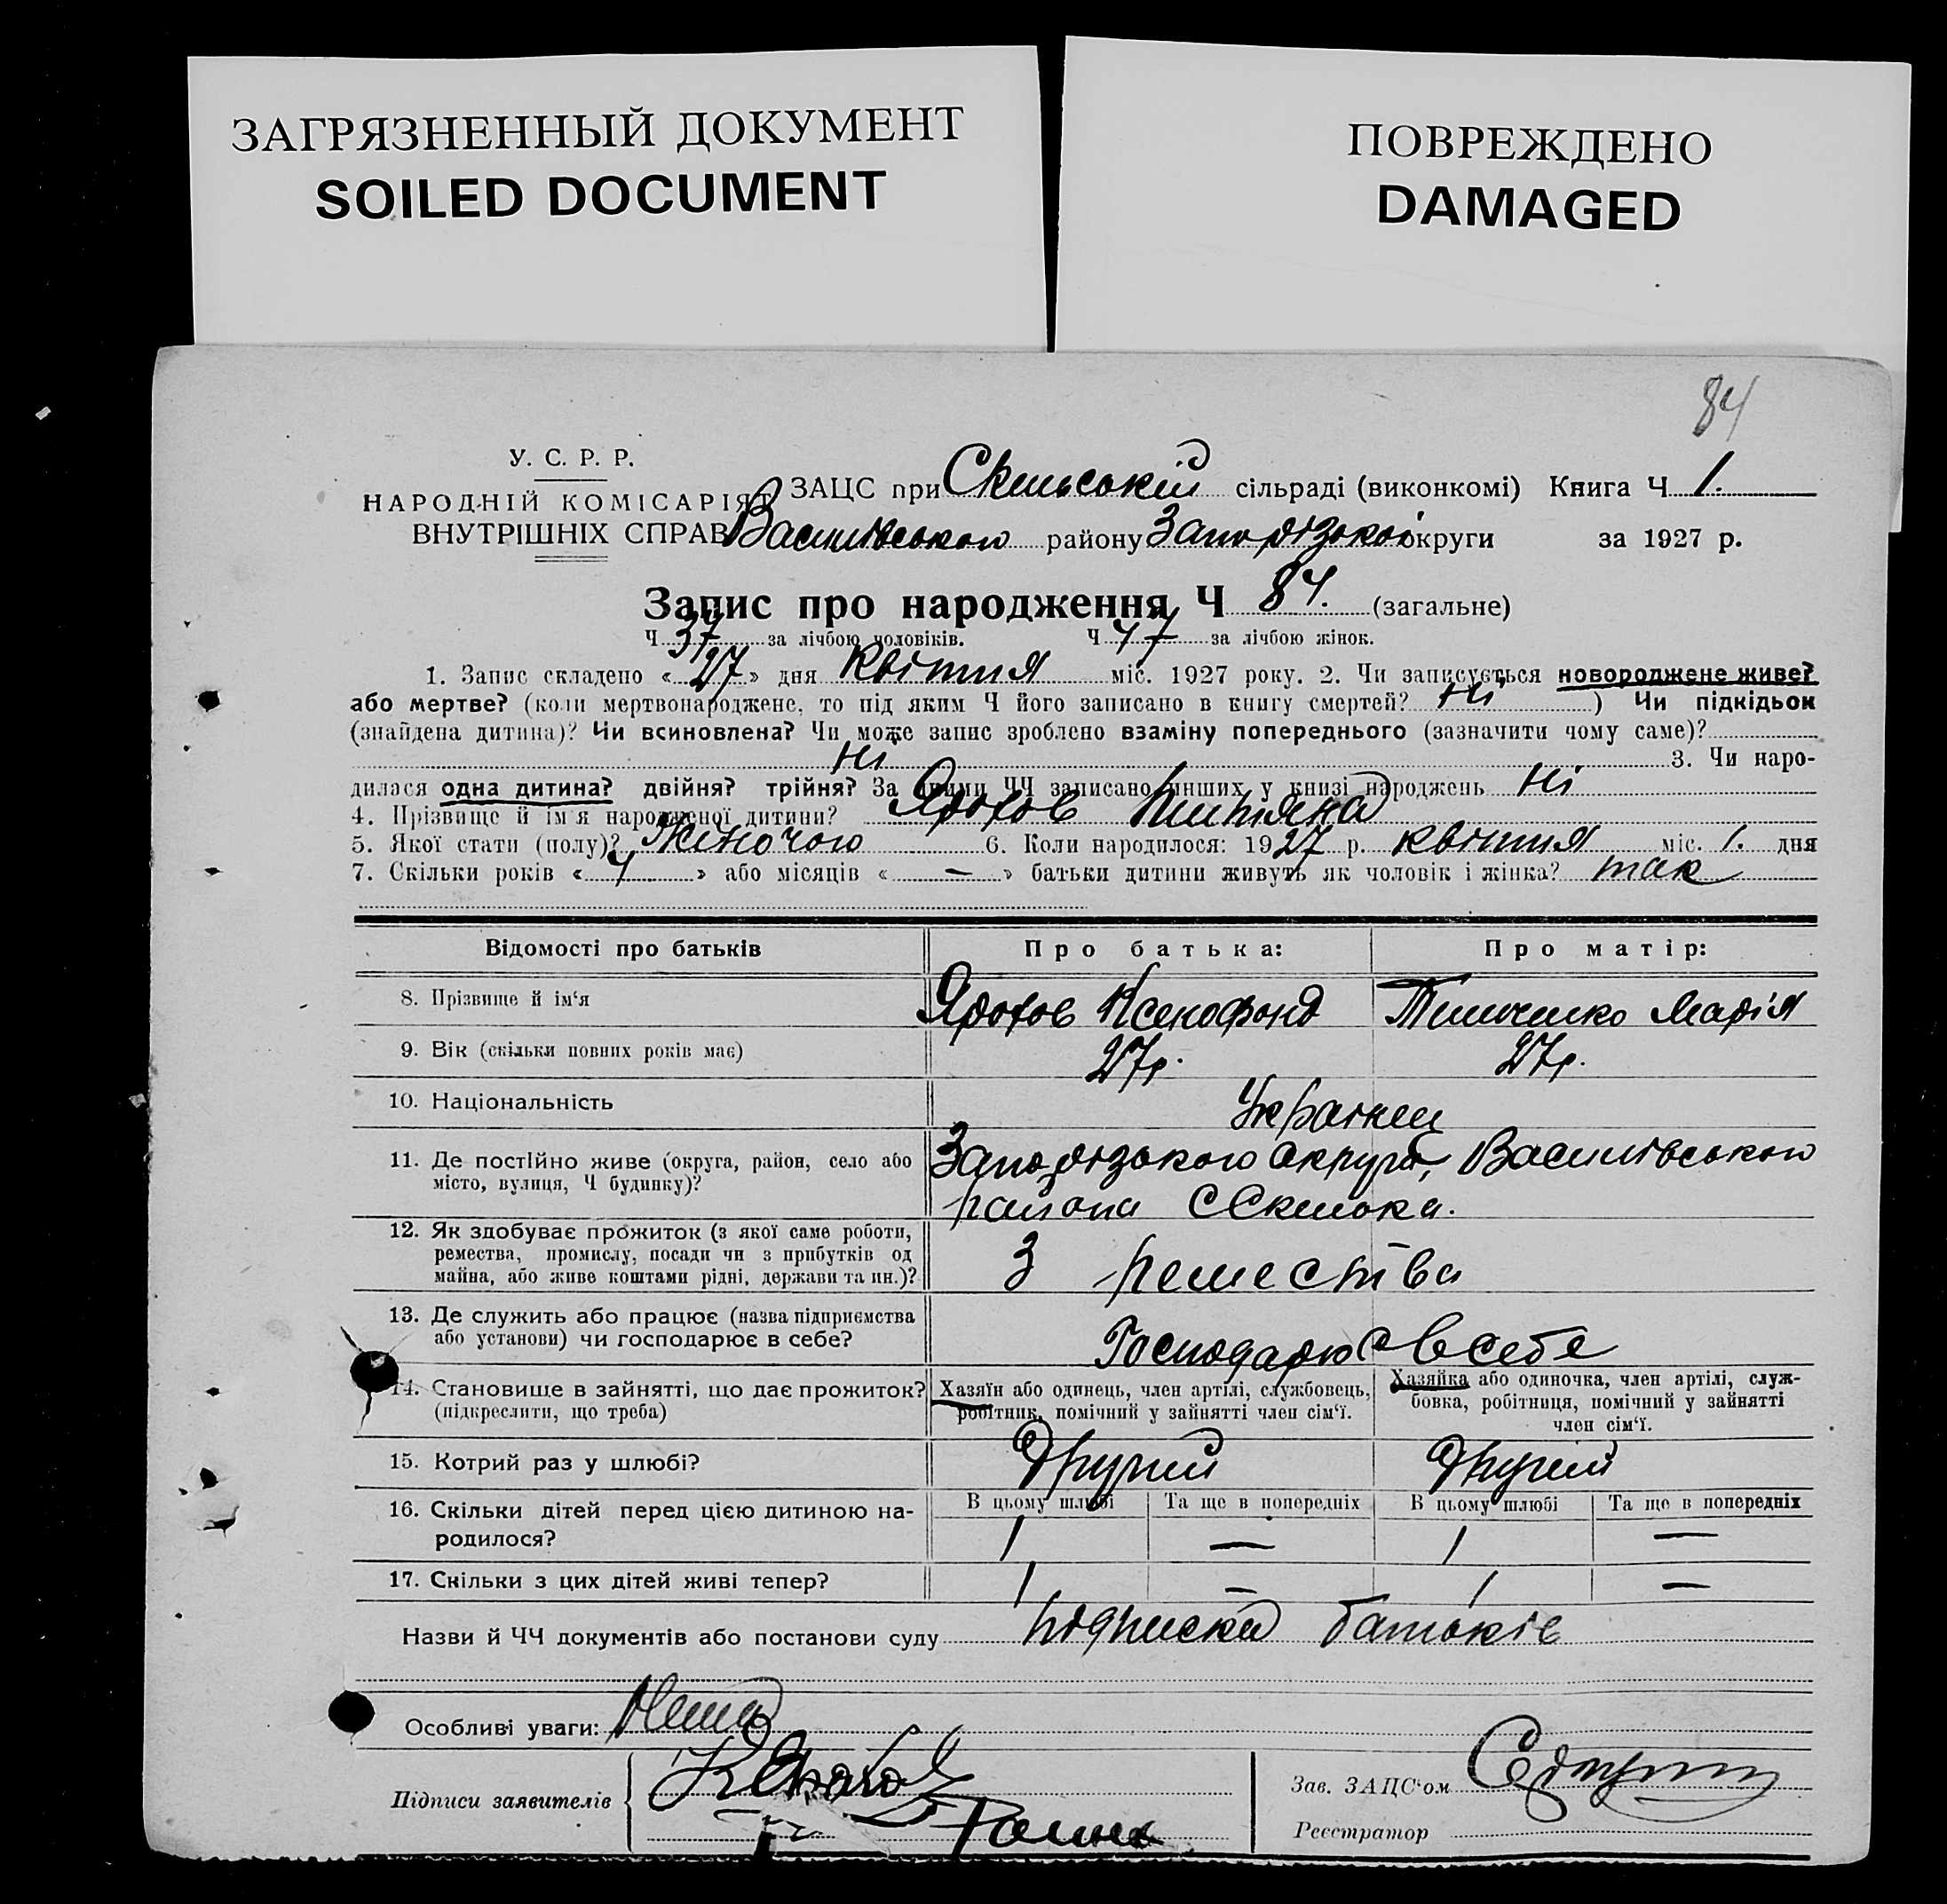 ЗАГРЯЗНЕННЫЙ ДОКУМЕНТ
SOILED DOCUMENT
ПОВРЕЖДЕНО
DAMAGED
84
У. С. Р. Р.
НАРОДНІЙ КОМІСАРІЯТ
ВНУТРІШНІХ СПРАВ
ЗАЦС при Скельській сільраді (виконкомі) Книга Ч 1.
Василівського району Запорізької округи за 1927 р.
Запис про народження Ч 84. (загальне)
Ч 37 за лічбою чоловіків. Ч 47 за лічбою жінок.
1. Запис складено « 27 » дня квітня міс. 1927 року. 2. Чи записується новороджене живе?
або мертве? (коли мертвонароджене, то під яким Ч його записано в книгу смертей? Ні ) Чи підкідьок
(знайдена дитина)? Чи всиновлена? Чи може запис зроблено взаміну попереднього (зазначити чому саме)?
Ні 3. Чи наро-
дилася одна дитина? двійня? трійня? За якими ЧЧ записано інших у книзі народжень Ні
4. Прізвище й ім'я народженої дитини?
5. Якої статі (полу)? Жіночого 6. Коли народилося: 1927 р. квітня міс. 1. дня
7. Скільки років « 4 » або місяців « — » батьки дитини живуть як чоловік і жінка? так
Відомості про батьків Про батька: Про матір:
8. Прізвище й ім'я Ксенофонд Марія
9. Вік (скільки повних років має) 27 р. 27 р.
10. Національність Українці
11. Де постійно живе (округа, район, село або
місто, вулиця, Ч будинку)?
Запорізького округа, Василівського
района С Скельока.
12. Як здобуває прожиток (з якої саме роботи,
ремества, промислу, посади чи з прибутків од
майна, або живе коштами рідні, держави та ин.)?
З ремества
13. Де служить або працює (назва підприємства
або установи) чи господарює в себе?
Господарює в себе
14. Становище в зайнятті, що дає прожиток?
(підкреслити, що треба)
Хазяїн або одинець, член артілі, службовець,
робітник, помічний у зайнятті член сім'ї.
Хазяйка або одиночка, член артілі, служ-
бовка, робітниця, помічний у зайнятті
член сім'ї.
15. Котрий раз у шлюбі? Другий Другий
16. Скільки дітей перед цією дитиною на-
родилося?
В цьому шлюбі Та ще в попередніх В цьому шлюбі Та ще в попередніх
1 — 1 —
17. Скільки з цих дітей живі тепер? 1 — 1 —
Назви й ЧЧ документів або постанови суду підписка батьків
Особливі уваги: Нема
Підписи заявителів
Зав. ЗАЦС'ом
Реєстратор